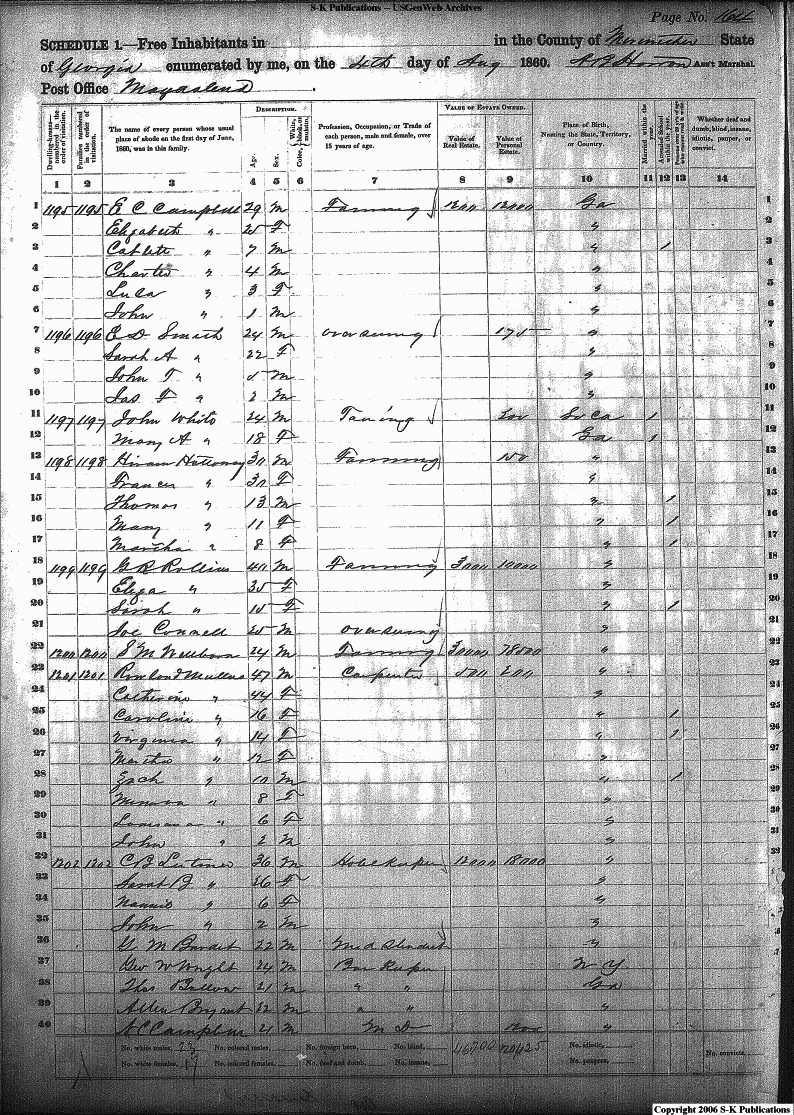 S-K Publications – USGenWeb Archives
Page No. 164
SCHEDULE 1.—Free Inhabitants in in the County of State
of Georgia enumerated by me, on the 4th day of Aug 1860. Ass't Marshal
Post Office
Dwelling-houses—numbered in the order of visitation.
Families numbered in the order of visitation.
The name of every person whose usual place of abode on the first day of June, 1860, was in this family.
DESCRIPTION.
Age.
Sex.
Color, White, black, or mulatto.
Profession, Occupation, or Trade of each person, male and female, over 15 years of age.
VALUE OF ESTATE OWNED.
Value of Real Estate.
Value of Personal Estate.
Place of Birth, Naming the State, Territory, or Country.
Married within the year.
Attended School within the year.
Whether deaf and dumb, blind, insane, idiotic, pauper, or convict.
1 2 3 4 5 6 7 8 9 10 11 12 13 14
1 1195 1195 E C Campbell 29 M Farming 1200 12000 Ga 1
2 Elizabeth " 25 F " 2
3 " 7 M " 1 3
4 Charles " 4 M " 4
5 " 3 F " 5
6 John " 1 M " 6
7 1196 1196 E D Smith 24 M overseeing 175 " 7
8 Sarah A " 22 F " 8
9 John T " 5 M " 9
10 Jas F " 2 M " 10
11 1197 1197 John White 24 M 200 So Ca 1 11
12 Mary A " 18 F Ga 1 12
13 1198 1198 Hiram Holloway 30 M Farming 150 " 13
14 Frances " 30 F " 14
15 Thomas " 13 M " 1 15
16 Mary " 11 F " 1 16
17 Martha " 8 F " 1 17
18 1199 1199 G R Rollins 40 M Farming 3000 10000 " 18
19 Eliza " 35 F " 19
20 Sarah " 15 F " 1 20
21 Joe Connell 25 M overseeing " 21
22 1200 1200 S M Wellborn 24 M Farming 30000 78500 " 22
23 1201 1201 Rowland Mullens 47 M Carpenter 500 200 " 23
24 Catherine " 44 F " 24
25 Caroline " 16 F " 1 25
26 Virginia " 14 F " 1 26
27 Martha " 12 F " 27
28 Zach " 10 M " 1 28
29 " 8 F " 29
30 Louisiana " 6 F " 30
31 John " 2 M " 31
32 1202 1202 C B 36 M Hotel Keeper 12000 18000 "
33 Sarah " 26 F "
34 Nannie " 6 F "
35 John " 2 M "
36 M 22 M Med Student "
37 Geo W Wright 24 M Bar Keeper N Y
38 Thos 21 M " " Ga
39 Allen Bryant 22 M " " "
40 A C Campbell 21 M M D 1200 "
No. white males, 23 No. colored males, No. foreign born, No. blind, 46700 120425 No. idiotic,
No. white females, 17 No. colored females, No. deaf and dumb, No. insane, No. paupers, No. convicts,
Copyright 2006 S-K Publications